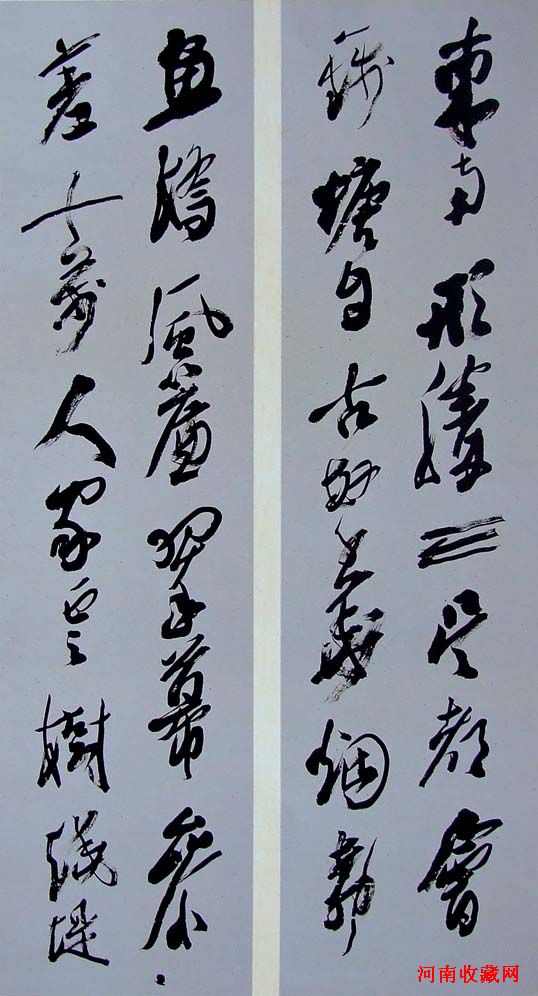 東南形勝三吳都會
錢塘自古繁華烟柳
畫橋風簾翠幕參
差十萬人家雲樹繞堤
河南收藏网